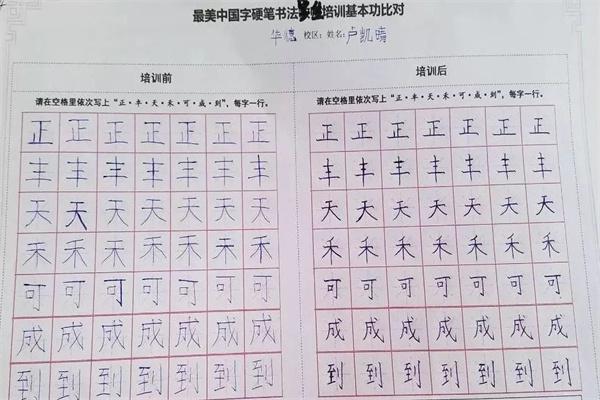 最美中国字硬笔书法培训基本功比对
华德 校区: 姓名: 卢凯晴
培训前
请在空格里依次写上“正·丰·天·禾·可·成·到”,每字一行。
正正正正正正正
丰丰丰丰丰丰丰
天天天天天天天
禾禾禾禾禾禾禾
可可可可可可可
成成成成成成成
到到到到到到到
培训后
请在空格里依次写上“正·丰·天·禾·可·成·到”,每字一行。
正正正正正正正
丰丰丰丰丰丰丰
天天天天天天天
禾禾禾禾禾禾禾
可可可可可可可
成成成成成成成
到到到到到到到